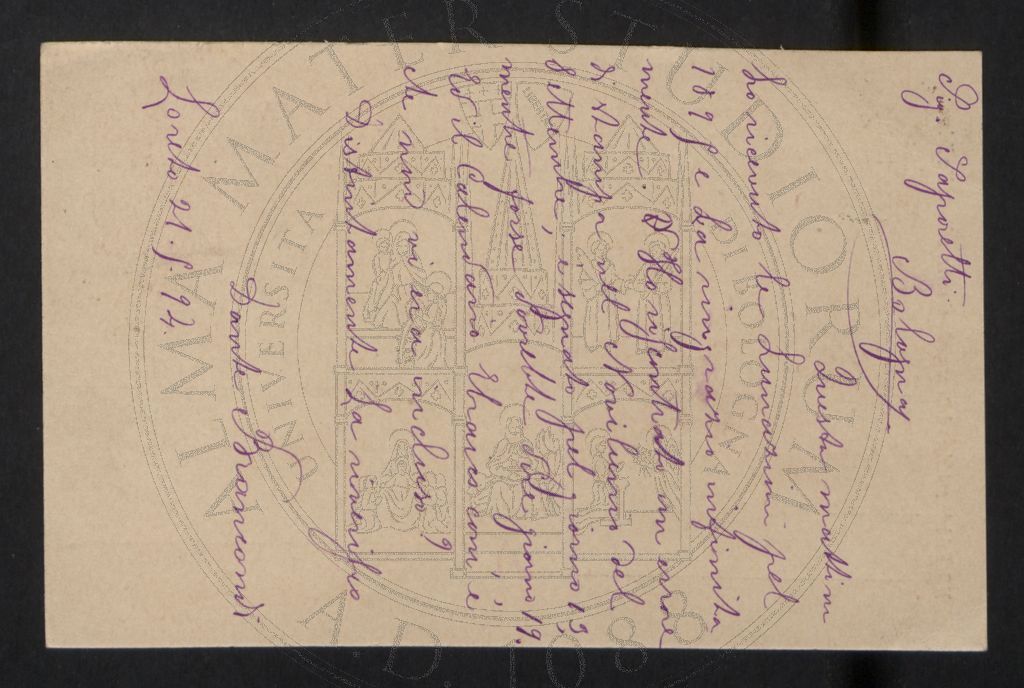 Sig. Saporetti.
Bologna
Questa mattina
ho ricevuto le Lunazioni pel
1895 e La ringrazio infinita
mente. Ho riscontrato un errore
di stampa nel Novilunio del
Settembre, è segnato pel giorno 13,
mentre forse dovrebbe dire giorno 19.
Ed il Calendario Ebraico com'è
che non vi era incluso?
Distintamente La riverisco
Dante Brancondi
Loreto 21.5.94.
ALMA MATER STUDIORUM
UNIVERSITÀ DI BOLOGNA
A.D. 1088